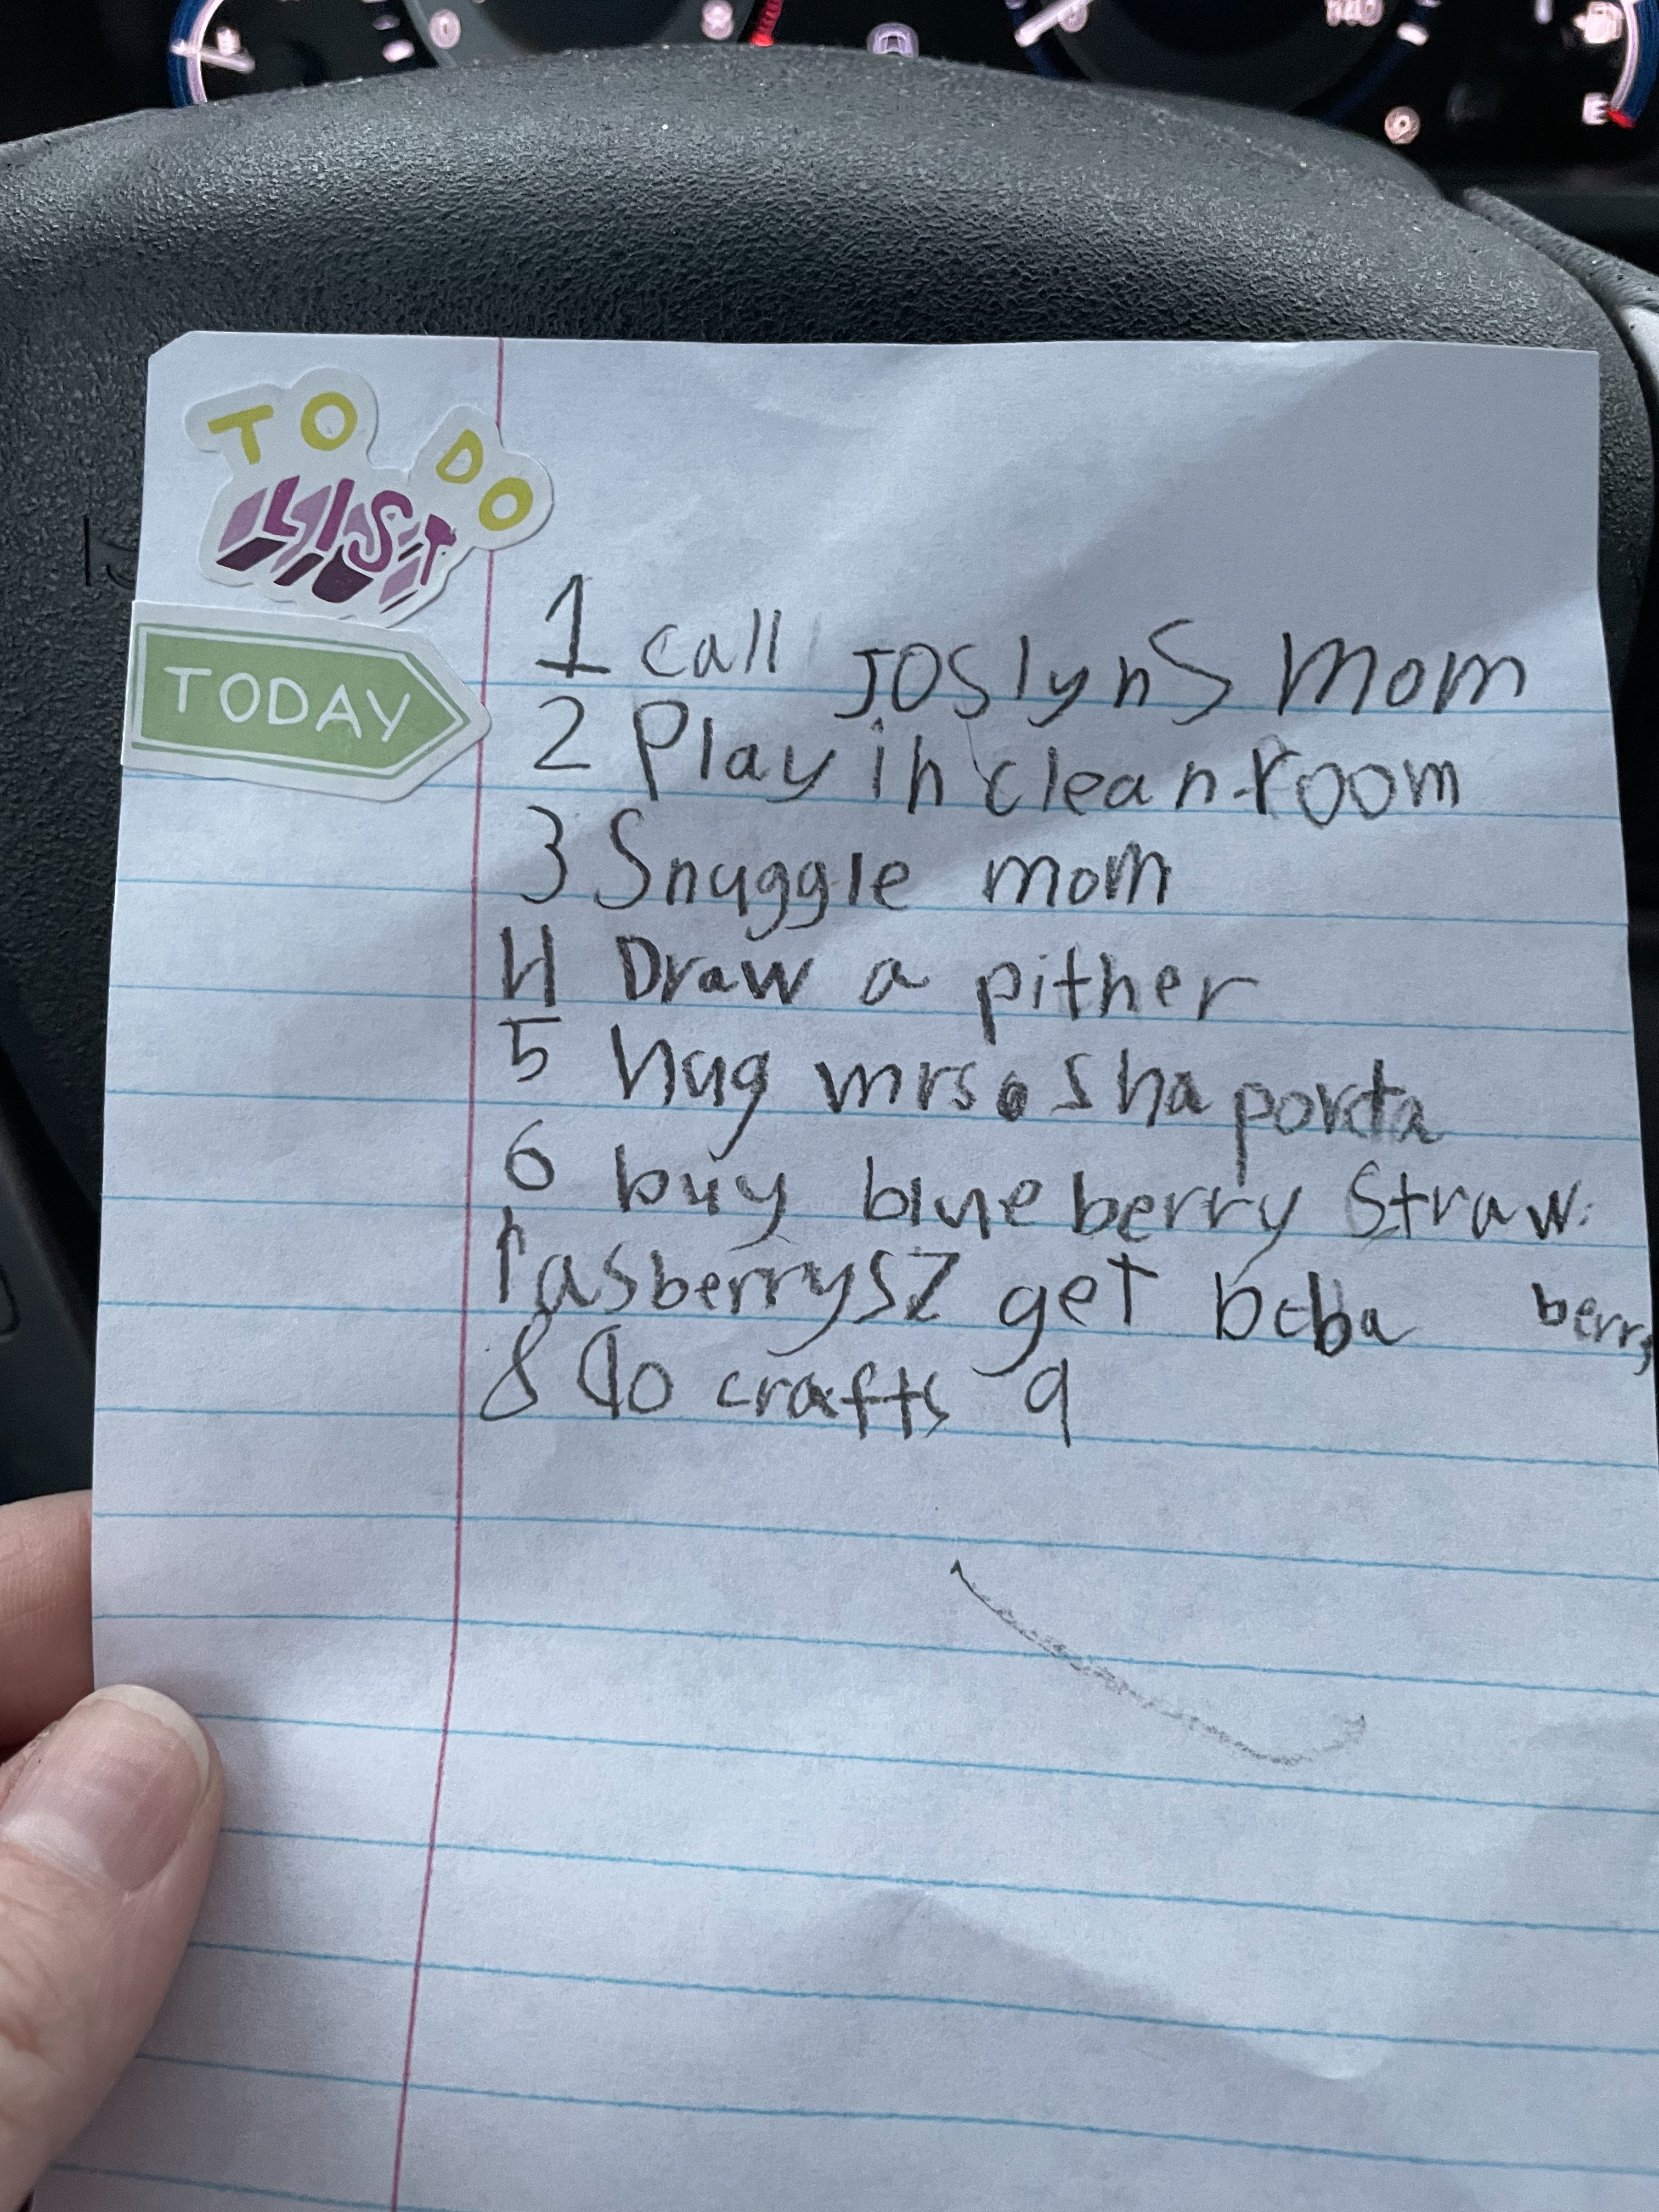 TO DO
LIST
TODAY
1 call JOSlynS Mom
2 Play in clean room
3 Snuggle mom
4 Draw a pither
5 hug mrs. Shaporta
6 buy blueberry straw.
berry
rasberrys 7 get boba
8 do crafts 9